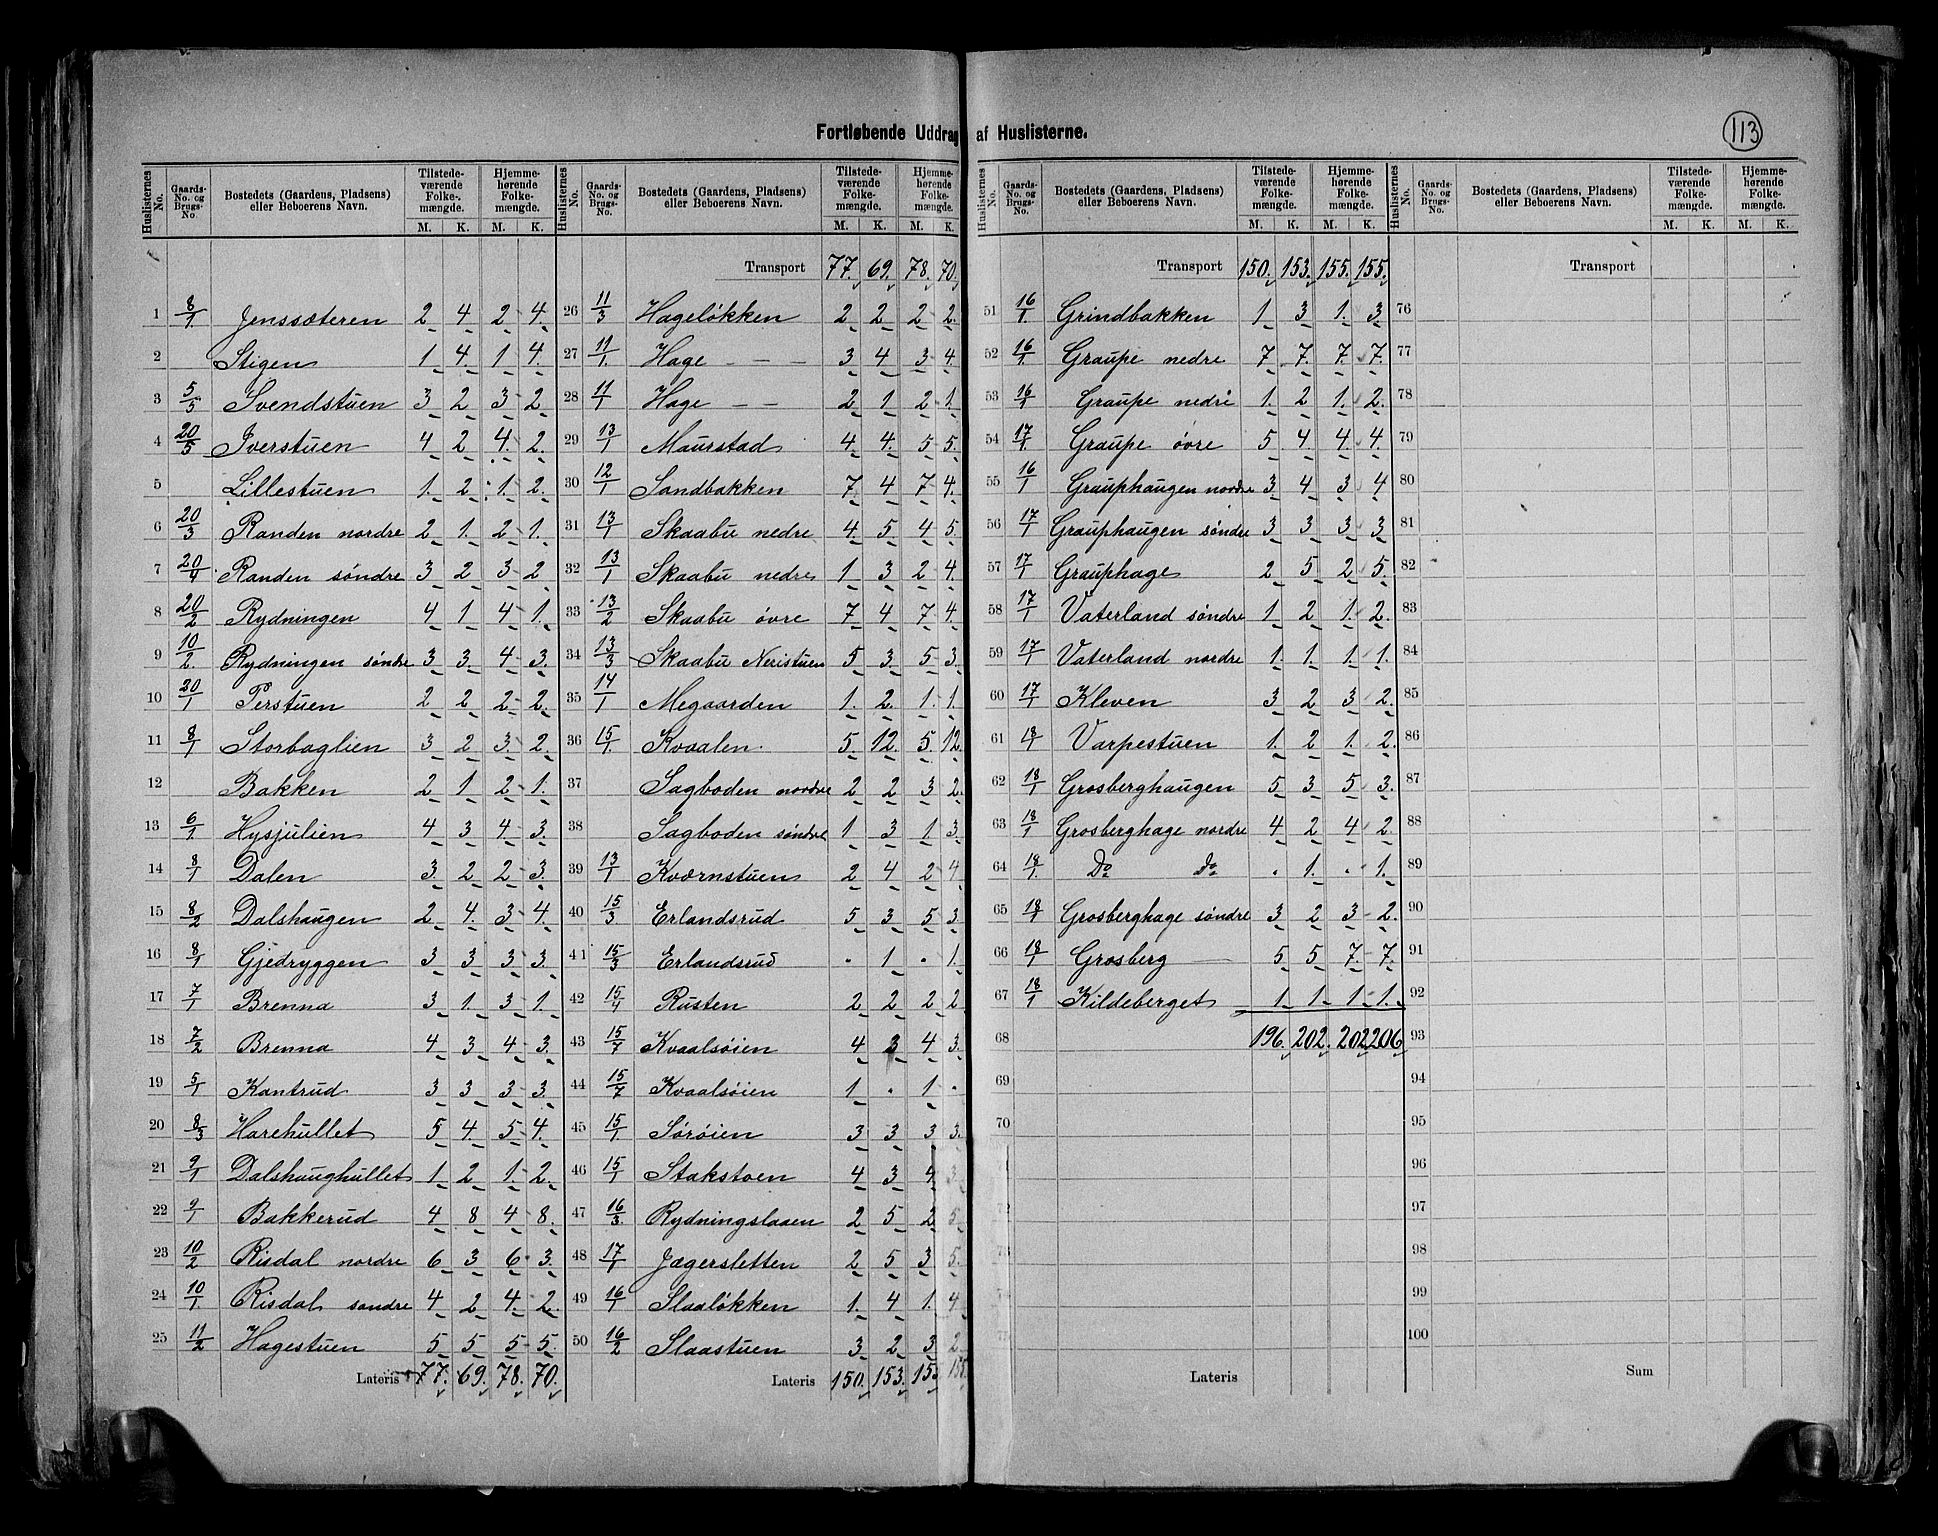 Fortløbende Uddrag af Huslisterne.
113
Huslisternes No. | Gaards-No. og Brugs-No. | Bostedets (Gaardens, Pladsens) eller Beboerens Navn. | Tilstedeværende Folkemængde. M. K. | Hjemmehørende Folkemængde. M. K.
1 8/1 Jenssæteren 2 4 2 4
2 Stigen 1 4 1 4
3 5/5 Svendstuen 3 2 3 2
4 20/5 Iverstuen 4 2 4 2
5 Lillestuen 1 2 1 2
6 20/3 Randen nordre 2 1 2 1
7 20/4 Randen søndre 3 2 3 2
8 20/2 Rydningen 4 1 4 1
9 10/2 Rydningen søndre 3 3 4 3
10 20/1 Perstuen 2 2 2 2
11 8/1 Storbaglien 3 2 3 2
12 Bakken 2 1 2 1
13 6/1 Hysjulien 4 3 4 3
14 8/1 Dalen 3 2 2 3
15 8/2 Dalshaugen 2 4 3 4
16 8/1 Gjedryggen 3 3 3 3
17 7/1 Brenna 3 1 3 1
18 7/2 Brenna 4 3 4 3
19 5/1 Kantrud 3 3 3 3
20 8/3 Harehullet 5 4 5 4
21 9/1 Dalshaughullet 1 2 1 2
22 9/1 Bakkerud 4 8 4 8
23 10/2 Risdal nordre 6 3 6 3
24 10/1 Risdal søndre 4 2 4 2
25 11/2 Hagestuen 5 5 5 5
Lateris 77. 69. 78. 70.
Huslisternes No. | Gaards-No. og Brugs-No. | Bostedets (Gaardens, Pladsens) eller Beboerens Navn. | Tilstedeværende Folkemængde. M. K. | Hjemmehørende Folkemængde. M. K.
Transport 77. 69. 78. 70.
26 11/3 Hageløkken 2 2 2 2
27 11/1 Hage — — 3 4 3 4
28 11/1 Hage — — 2 1 2 1
29 13/1 Maurstad 4 4 5 5
30 12/1 Sandbakken 7 4 7 4
31 13/1 Skaabu nedre 4 5 4 5
32 13/1 Skaabu nedre 1 3 2 4
33 13/2 Skaabu øvre 7 4 7 4
34 13/3 Skaabu Neristuen 5 3 5 3
35 14/1 Megaarden 1 2 1 1
36 15/1 Kvaalen 5 12 5 12
37 Sagboden nordre 2 2 3 2
38 Sagboden søndre 1 3 1 3
39 13/1 Kværnstuen 2 4 2 4
40 15/3 Erlandsrud 5 3 5 3
41 15/3 Erlandsrud . 1 . 1
42 15/4 Rusten 2 2 2 2
43 15/7 Kvaalsøien 4 3 4 3
44 15/7 Kvaalsøien 1 . 1 .
45 15/1 Sørøien 3 3 3 3
46 15/1 Stakstoen 4 3 4 3
47 16/3 Rydningslaaen 2 5 2 5
48 17/1 Jægersletten 2 5 3 5
49 16/1 Slaaløkken 1 4 1 4
50 16/2 Slaastuen 3 2 3 2
Lateris 150. 153. 155 155
Huslisternes No. | Gaards-No. og Brugs-No. | Bostedets (Gaardens, Pladsens) eller Beboerens Navn. | Tilstedeværende Folkemængde. M. K. | Hjemmehørende Folkemængde. M. K.
Transport 150. 153. 155. 155.
51 16/1 Grindbakken 1 3 1 3
52 16/1 Graupe nedre 7 7 7 7
53 16/1 Graupe nedre 1 2 1 2
54 17/1 Graupe øvre 5 4 4 4
55 16/1 Grauphaugen nordre 3 4 3 4
56 17/1 Grauphaugen søndre 3 3 3 3
57 17/1 Grauphage 2 5 2 5
58 17/1 Vaterland søndre 1 2 1 2
59 17/1 Vaterland nordre 1 1 1 1
60 17/1 Kleven 3 2 3 2
61 18/1 Varpestuen 1 2 1 2
62 18/1 Grosberghaugen 5 3 5 3
63 18/1 Grosberghage nordre 4 2 4 2
64 18/1 Do do . 1 . 1
65 18/1 Grosberghage søndre 3 2 3 2
66 18/1 Grosberg 5 5 7 7
67 18/1 Kildeberget 1 1 1 1
68 196. 202. 202 206
69
70
Lateris
Huslisternes No. | Gaards-No. og Brugs-No. | Bostedets (Gaardens, Pladsens) eller Beboerens Navn. | Tilstedeværende Folkemængde. M. K. | Hjemmehørende Folkemængde. M. K.
Transport
76
77
78
79
80
81
82
83
84
85
86
87
88
89
90
91
92
93
94
95
96
97
98
99
100
Sum